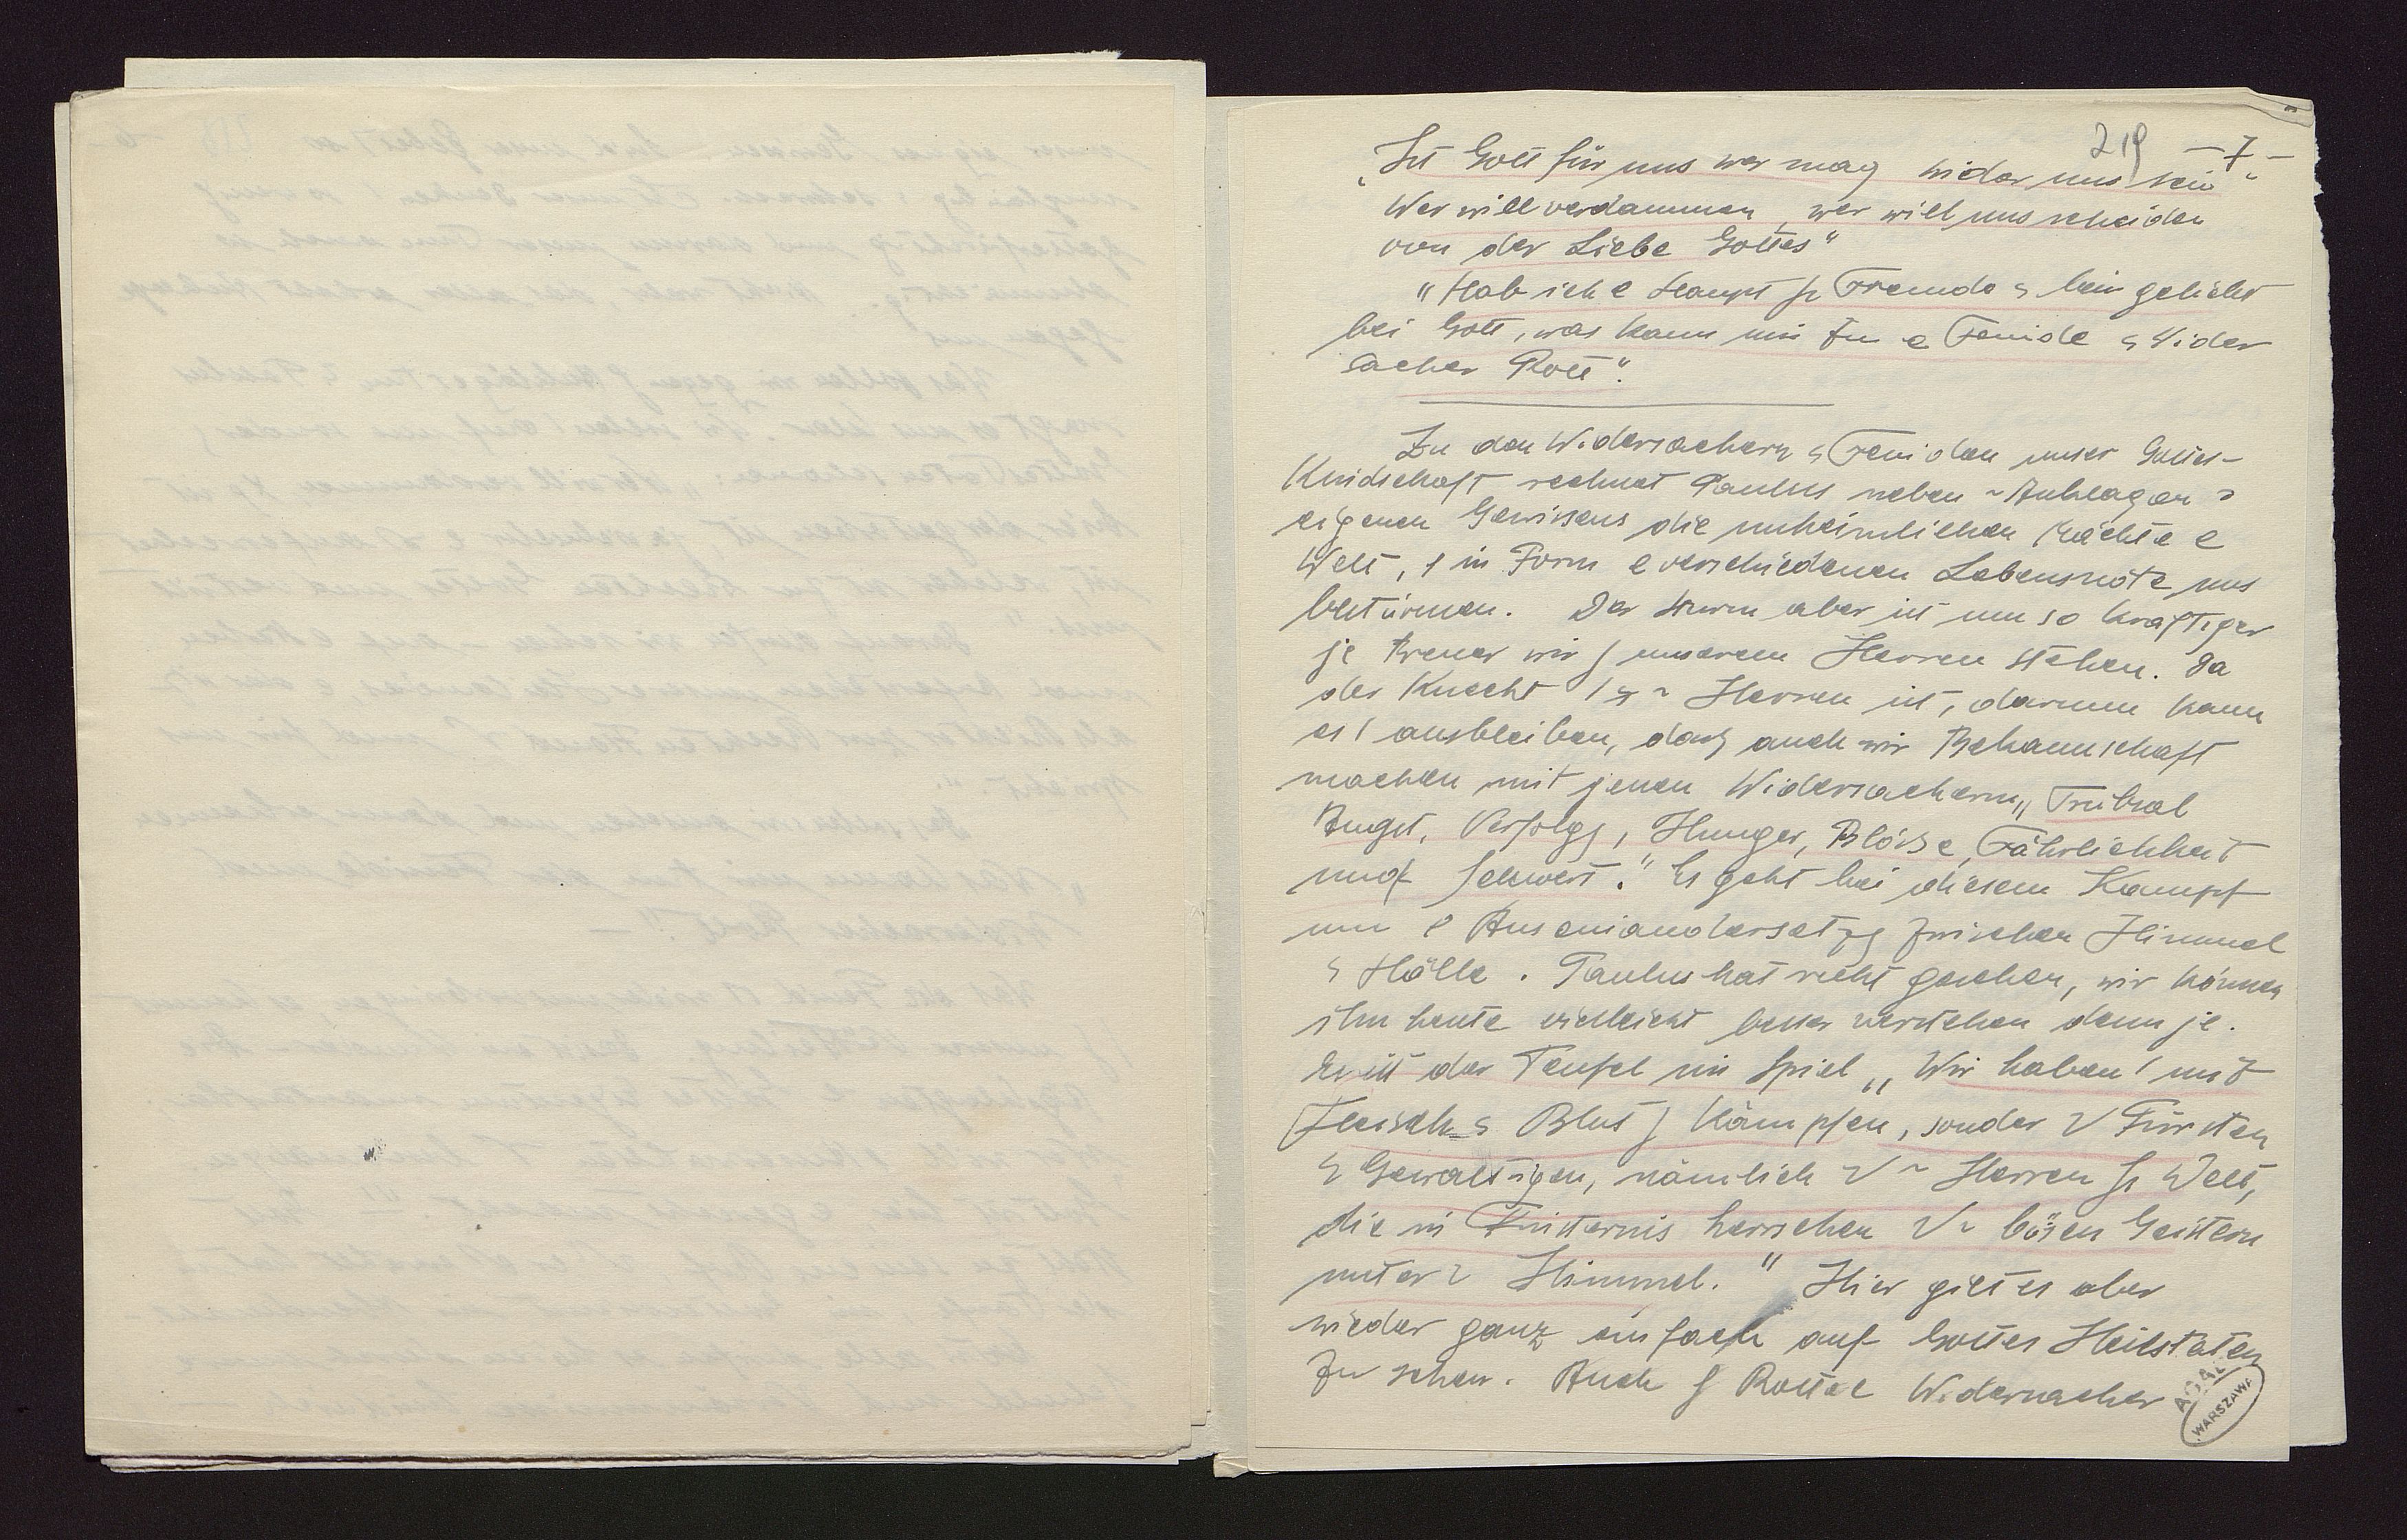 219 -7-
„Ist Gott für uns wer mag wider uns sein"
Wer will verdammen, wer will uns scheiden
von der Liebe Gottes"
"Hab ich e Haupt z Freunde s bin geliebt
bei Gott, was kann mir tun e Feinde s Wider
sacher Rott".
Zu den Widersachern s Feinden unser Gottes-
Kindschaft rechnet Paulus neben ~ Anklagen
eigenen Gewissens die unheimlichen Mächte e
Welt, in Form e verschiedenen Lebensnöte uns
bestürmen. Der Sturm aber ist um so kräftiger
je treuer wir z unserem Herren stehen. Da
der Knecht ~ Herren ist, darum kann
es ausbleiben, daß auch wir Bekannschaft
machen mit jenen Widersachern „Trübsal
Angst, Verfolgg, Hunger, Blöße, Fährlichkeit
und Schwert." Es geht bei diesem Kampf
um e Auseinandersetzg zwischen Himmel
s Hölle. Paulus hat recht gesehen, wir können
ihn heute vielleicht besser verstehen denn je.
Es ist der Teufel im Spiel „Wir haben mit
Fleisch s Blut z kämpfen, sonder Fürsten
s Gewaltigen, nämlich ~ Herren Welt,
die in Finsternis herrschen ~ bösen Geistern
unter Himmel." Hier gilt es aber
wieder ganz einfach auf Gottes Heilstaten
zu sehen. Auch Rotte e Widersacher
WARSZAWA